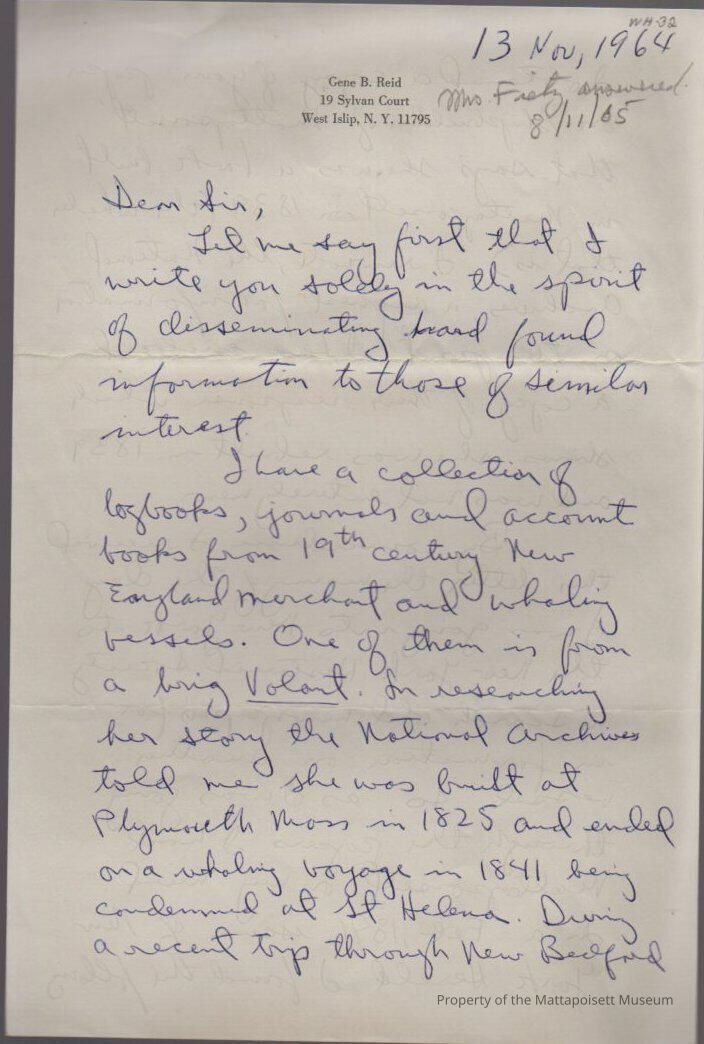 WH-32
13 Nov, 1964
Gene B. Reid
19 Sylvan Court
West Islip, N. Y. 11795
Mrs answered
8/11/65
Dear Sir,
Let me say first that I
write you solely in the spirit
of disseminating hard found
information to those of similar
interest.
I have a collection of
logbooks, journals and account
books from 19th century New
England merchant and whaling
vessels. One of them is from
a brig Volant. In researching
her story the National Archives
told me she was built at
Plymouth Mass in 1825 and ended
on a whaling voyage in 1841 being
condemned at St Helena. During
a recent trip through New Bedford
Property of the Mattapoisett Museum